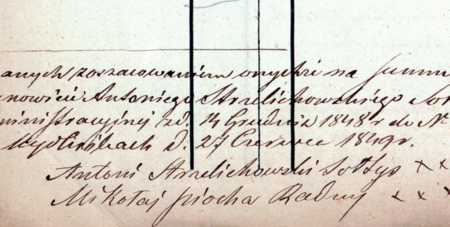 anych zoszacowaniem onychże na summ
anowicie Antoniego Strzelichowskiego Soł
ministracyjnej zd. 14 Grudnia 1848 r do N
Mydlnikach d. 27 Czerwca 1849 r.
Antoni Strzelichowski Sołtys xx
Mikołaj Piocha Radny xx